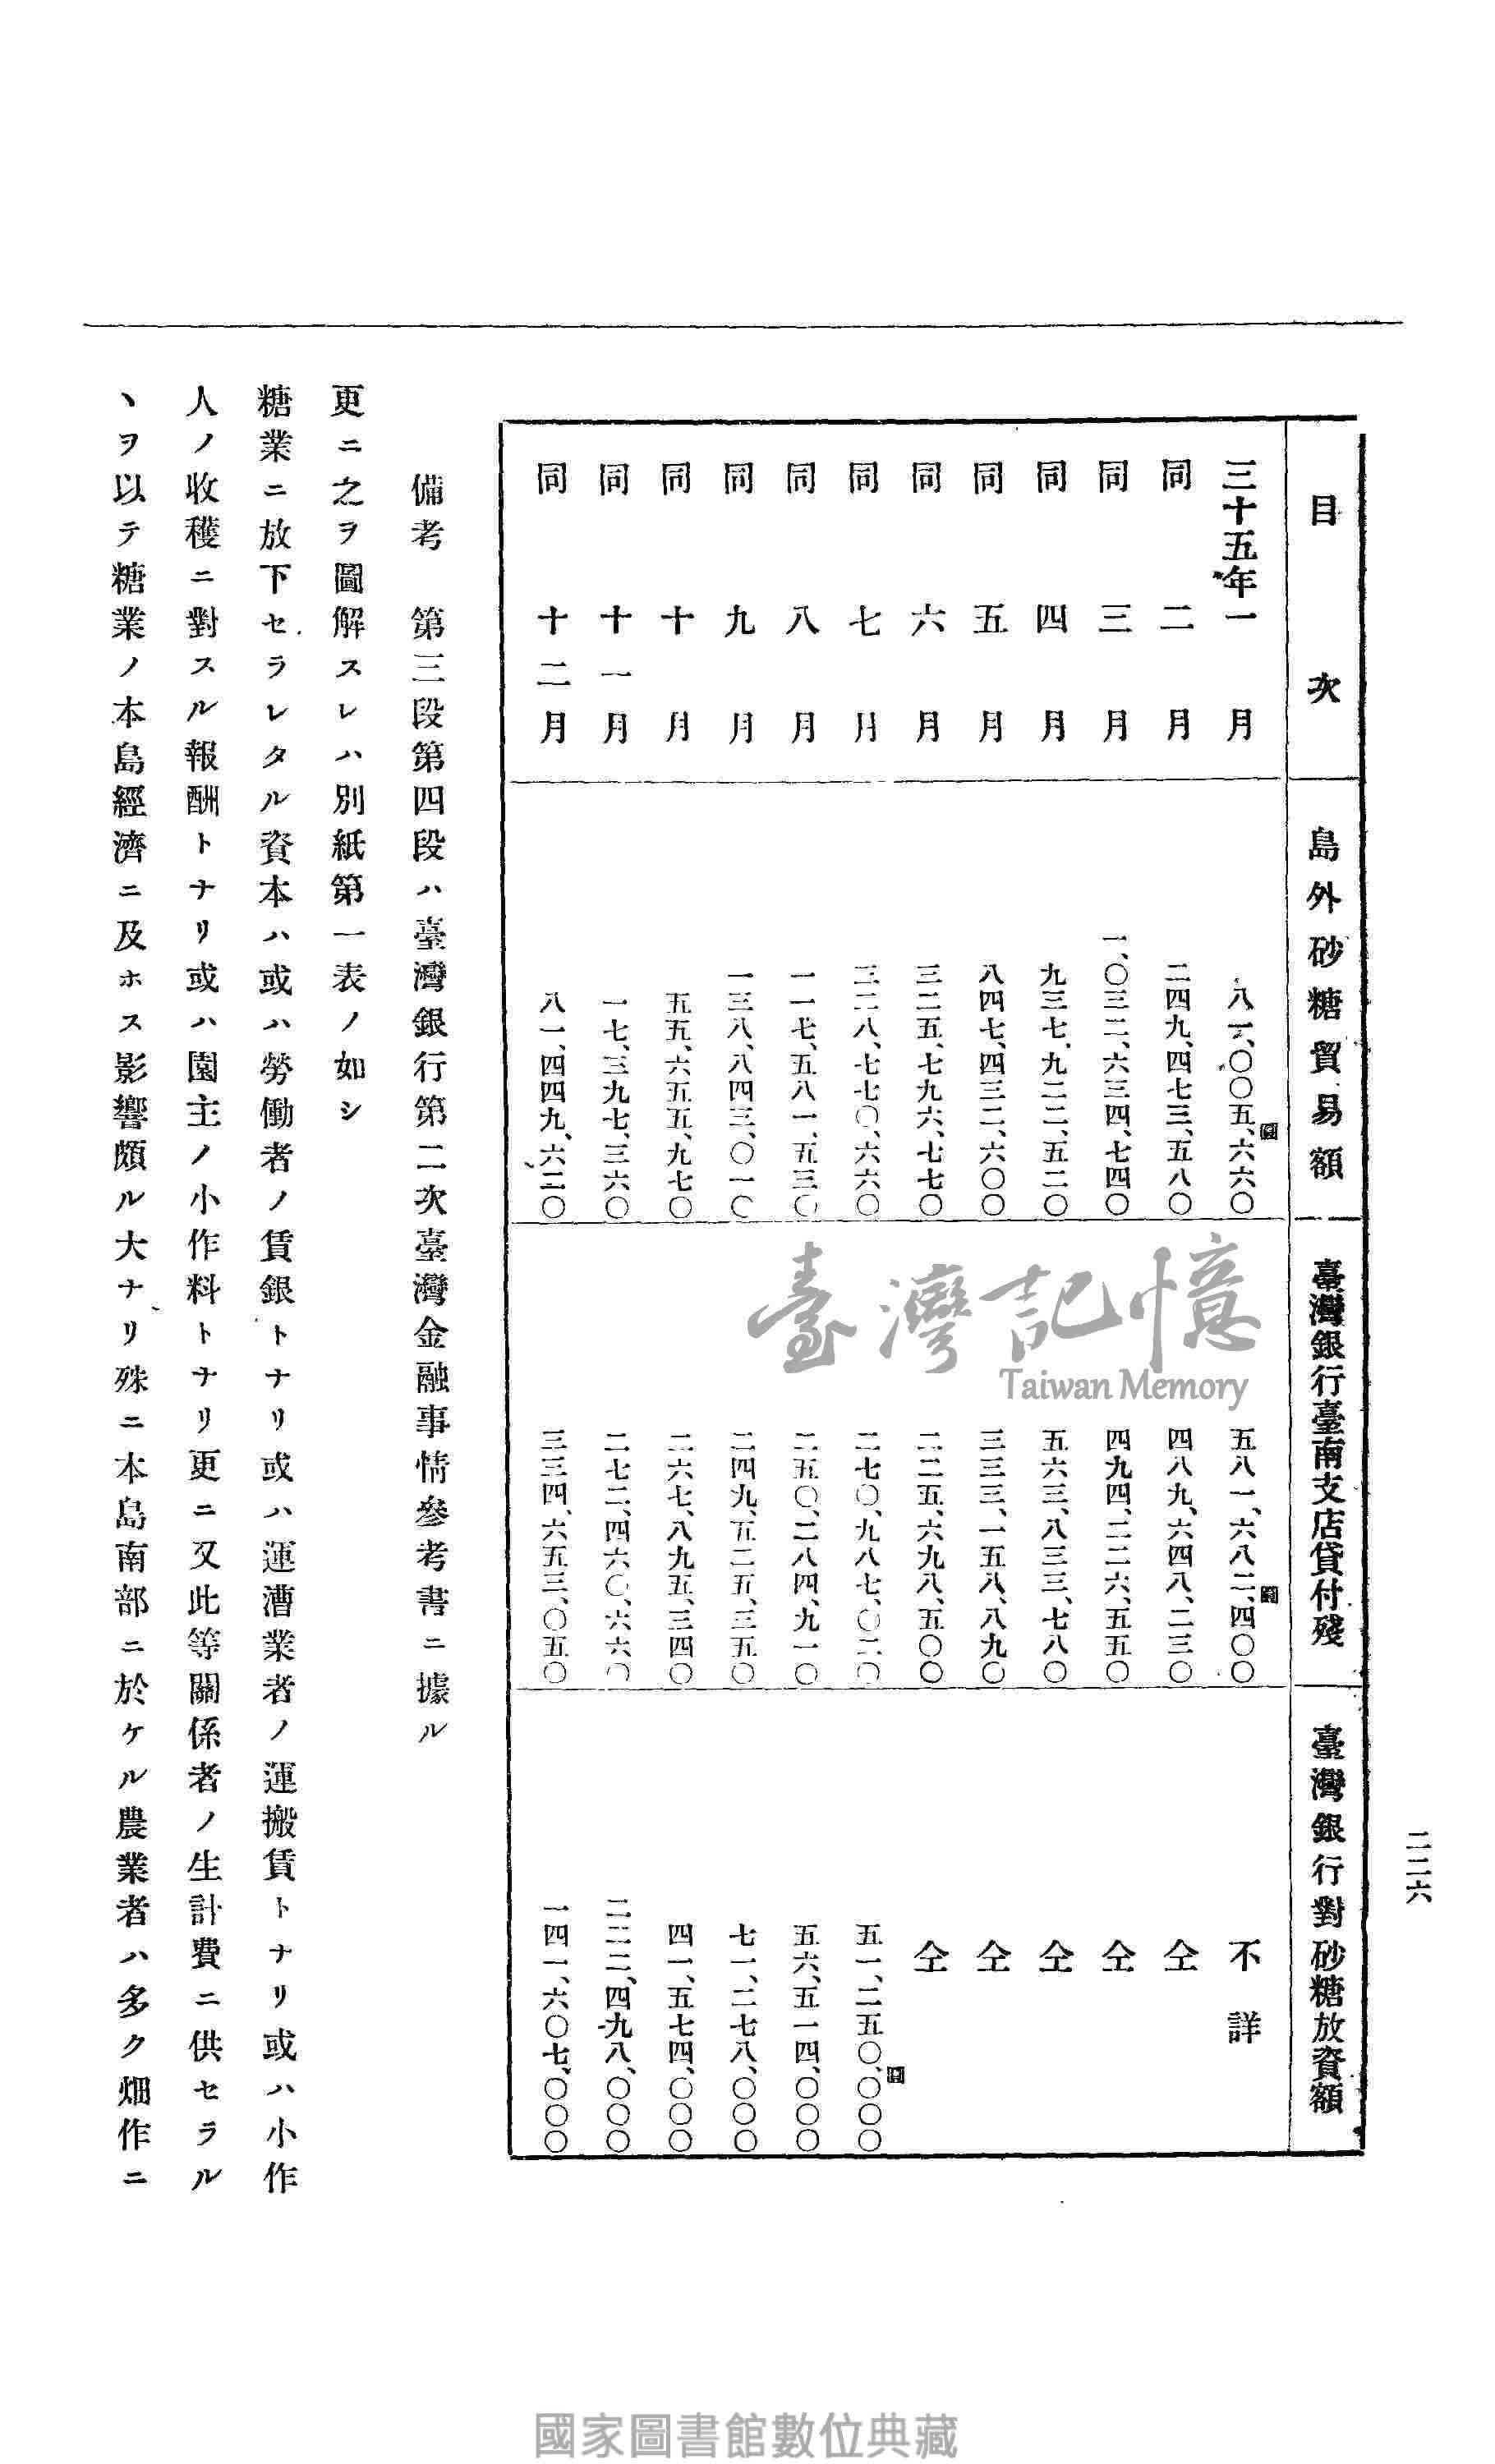 二二六
目次
島外砂糖貿易額
臺灣銀行臺南支店貸付殘
臺灣銀行對砂糖放資額
三十五年一月
圓
八六、〇〇五、六六〇
圓
五八一、六八二、四〇〇
不詳
同二月
二四九、四七三、五八〇
四八九、六四八、二三〇
仝
同三月
一、〇三二、六三四、七四〇
四九四、二二六、五五〇
仝
同四月
九三七、九二二、五二〇
五六三、八三三、七八〇
仝
同五月
八四七、四三二、六〇〇
三三三、一五八、八九〇
仝
同六月
三二五、七九六、七七〇
二二五、六九八、五〇〇
仝
同七月
三二八、七七〇、六六〇
二七〇、九八七、〇二〇
圓
五一、二五〇、〇〇〇
同八月
一一七、五八一、五三〇
二五〇、二八四、九一〇
五六、五一四、〇〇〇
同九月
一三八、八四三、〇一〇
二四九、五二五、三五〇
七一、二七八、〇〇〇
同十月
五五、六五五、九七〇
二六七、八九五、三四〇
四一、五七四、〇〇〇
同十一月
一七、三九七、三六〇
二七二、四六〇、六六〇
二三二、四九八、〇〇〇
同十二月
八一、四四九、六二〇
三三四、六五三、〇五〇
一四一、六〇七、〇〇〇
備考　第三段第四段ハ臺灣銀行第二次臺灣金融事情參考書ニ據ル
更ニ之ヲ圖解スレハ別紙第一表ノ如シ
糖業ニ放下セラレタル資本ハ或ハ勞働者ノ賃銀トナリ或ハ運漕業者ノ運搬賃トナリ或ハ小作
人ノ收穫ニ對スル報酬トナリ或ハ園主ノ小作料トナリ更ニ又此等關係者ノ生計費ニ供セラル
ヽヲ以テ糖業ノ本島經濟ニ及ホス影響頗ル大ナリ殊ニ本島南部ニ於ケル農業者ハ多ク畑作ニ
臺灣記憶
Taiwan Memory
國家圖書館數位典藏